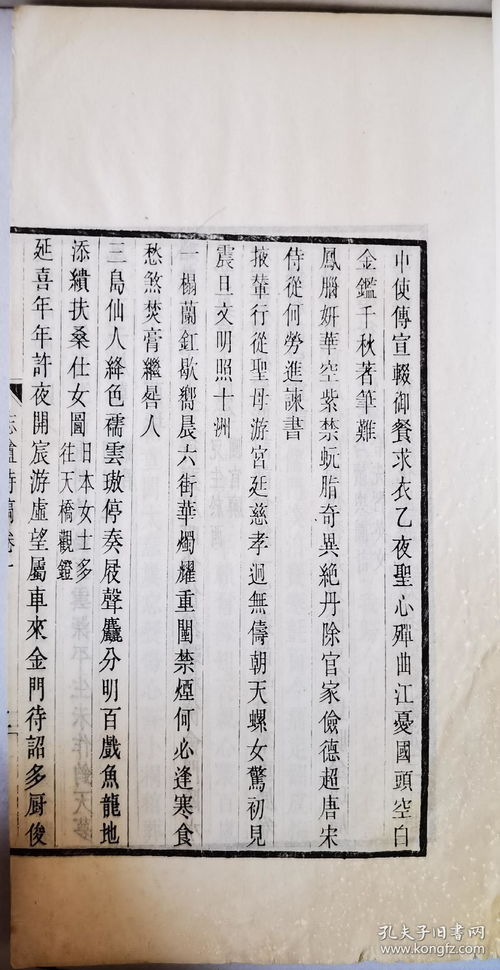 中使傳宣輟御餐求衣乙夜聖心殫曲江憂國頭空白
金鑑千秋著筆難
鳳腦妍華空紫禁蚖脂奇異絶丹除官家儉德超唐宋
侍從何勞進諫書
掖輦行從聖母游宮廷慈孝迥無儔朝天螺女驚初見
震旦文明照十洲
一榻蘭釭歇嚮晨六街華燭耀重闉禁煙何必逢寒食
愁煞焚膏繼晷人
三島仙人絳色襦雲璈停奏屐聲麤分明百戲魚龍地
添繢扶桑仕女圖
日本女士多
往天橋觀鐙
延喜年年許夜開宸游虛望屬車來金門待詔多厨俊
孔夫子旧书网
www.kongfz.com